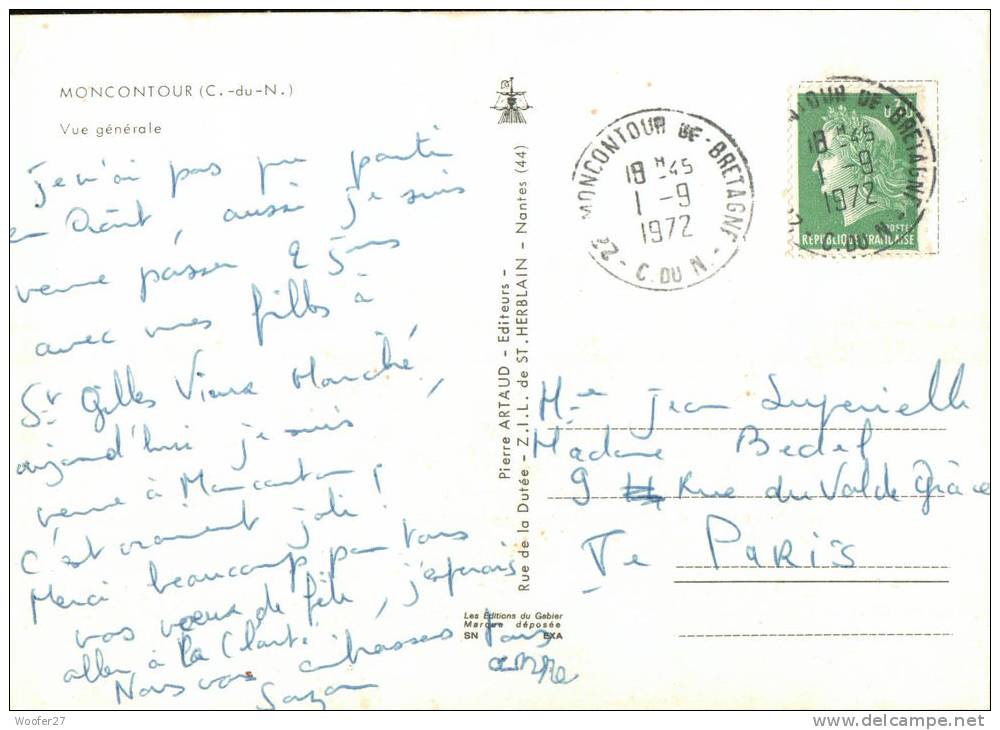 MONCONTOUR (C.-du-N.)
Vue générale
Je n'ai pas pu partir
en Août, aussi je suis
venue passer 2 5
avec mes filles à
St Gilles Vieux Marché,
aujourd'hui je suis
venue à Moncontour!
C'est vraiment joli!
Merci beaucoup pour tous
vos voeux de fête, j'espérais
aller à la Clarté
Nous vous embrassons tous
Suzanne
Pierre ARTAUD - Editeurs -
Rue de la Dutée - Z.I.L. de ST. HERBLAIN - Nantes (44)
Les Editions du Gabier
Marque déposée
SN EXA
MONCONTOUR DE-BRETAGNE
18 H 45
1 -9
1972
22 - C. DU N. -
TOUR DE-BRETAGNE
18 H 45
1 -9
1972
22 - C. DU N. -
POSTES
REPUBLIQUE FRANÇAISE
Mme Jean
Madame Bedel
9 Rue du Val de Grâce
Ve PARIS
Woofer27
delcampe.net